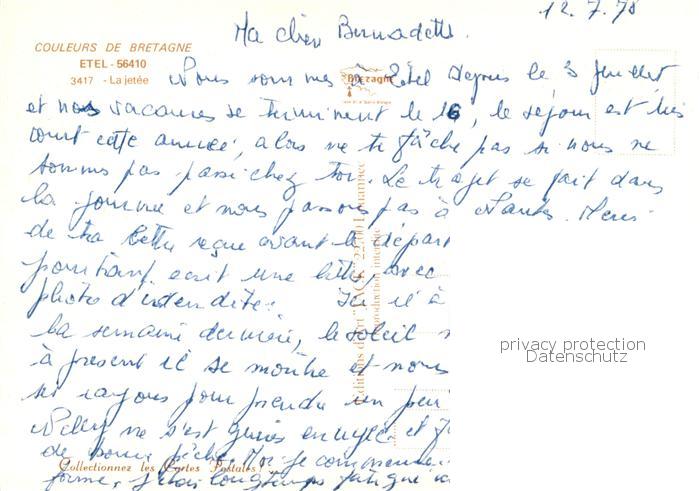 12.7.78
Ma chère Bernadette.
COULEURS DE BRETAGNE
ETEL - 56410
3417 - La jetée
Bretagne
Nous sommes à Etel depuis le 3 Juillet
et nos vacances se terminent le 16, le séjour est très
court cette année, alors ne te fâche pas si nous ne
sommes pas passés chez toi. Le trajet se fait dans
la journée et nous passons pas à Nantes. Merci
de ta lettre reçue avant le départ
pourtant écrit une lettre, avec
photos d'identité. Ici il a
la semaine dernière, le soleil
à présent il se montre et nous
ses rayons pour prendre un peu
Nelly ne s'est guère ennuyée et
de bonne pêche. Moi je commence
forme, j'étais longtemps fatiguée
Collectionnez les Cartes Postales
privacy protection
Datenschutz